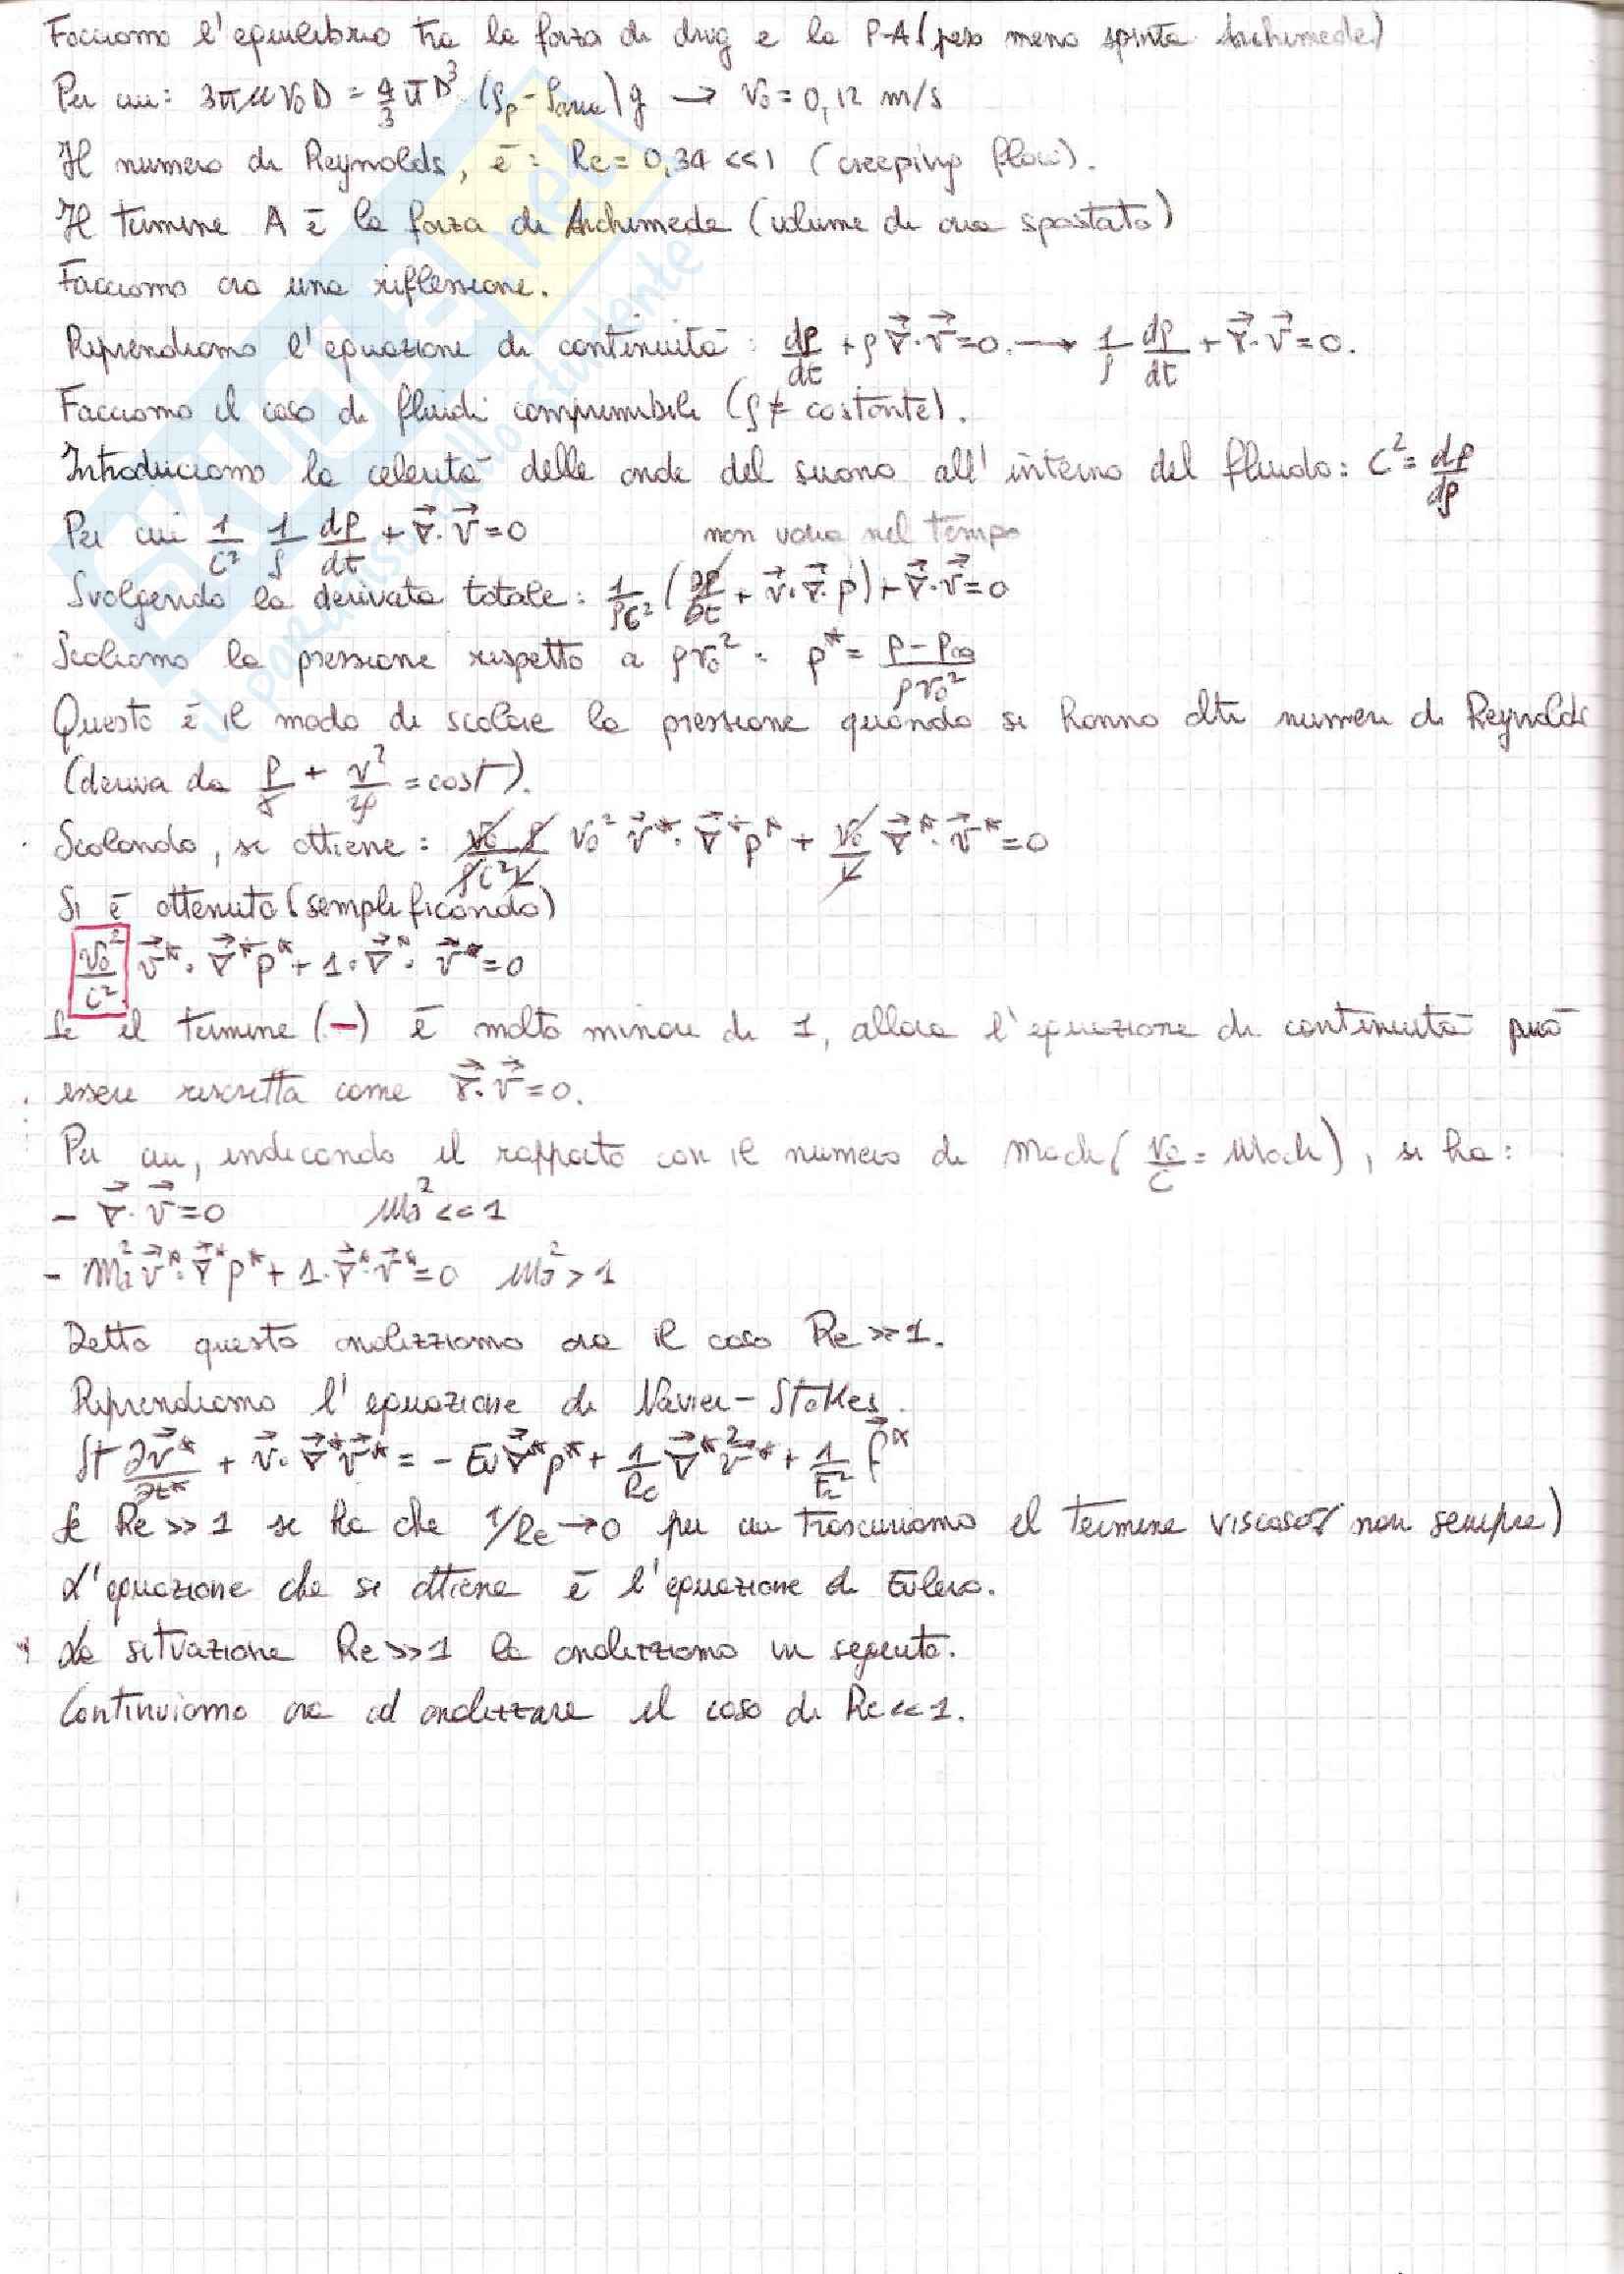 Facciamo l'equilibrio tra la forza di drag e la P-A (peso meno spinta Archimede)
Per cui: 3πμV₀D = 4/3 πD³ (ρp - ρaria) g → V₀ = 0,12 m/s
Il numero di Reynolds, è: Re = 0,34 <<1 (creeping flow).
Il termine A è la forza di Archimede (volume di aria spostato)
Facciamo ora una riflessione.
Riprendiamo l'equazione di continuità: dρ/dt + ρ ∇⃗·v⃗ = 0. → 1/ρ dρ/dt + ∇⃗·v⃗ = 0.
Facciamo il caso di fluidi comprimibili (ρ ≠ costante).
Introduciamo la celerità delle onde del suono all'interno del fluido: C² = dp/dρ
Per cui 1/C² 1/ρ dp/dt + ∇⃗·v⃗ = 0
non varia nel tempo
Svolgendo la derivata totale: 1/ρC² (∂p/∂t + v⃗·∇⃗·p) + ∇⃗·v⃗ = 0
Scaliamo la pressione rispetto a ρv₀²: p* = p - p∞/ρv₀²
Questo è il modo di scalare la pressione quando si hanno alti numeri di Reynolds
(deriva da p/γ + v²/2g = cost).
Scalando, si ottiene: v₀ ρ/ρC²L v₀² v⃗*·∇⃗*p* + v₀/L ∇⃗*·v⃗* = 0
Si è ottenuto (semplificando)
v₀²/C² v⃗*·∇⃗*p* + 1·∇⃗*·v⃗* = 0
Se il termine (-) è molto minore di 1, allora l'equazione di continuità può
essere riscritta come ∇⃗·v⃗ = 0.
Per cui, indicando il rapporto con il numero di Mach (v₀/C = Mach), si ha:
- ∇⃗·v⃗ = 0 Ma² << 1
- Ma² v⃗*·∇⃗*p* + 1·∇⃗*·v⃗* = 0 Ma² > 1
Detto questo analizziamo ora il caso Re >> 1.
Riprendiamo l'equazione di Navier-Stokes.
St ∂v⃗*/∂t* + v⃗·∇⃗*v⃗* = - Eu ∇⃗*p* + 1/Re ∇⃗*²v⃗* + 1/Fr² f⃗*
Se Re >> 1 si ha che 1/Re → 0 per cui trascuriamo il termine viscoso (non sempre)
L'equazione che si ottiene è l'equazione di Eulero.
La situazione Re >> 1 la analizziamo in seguito.
Continuiamo ora ad analizzare il caso di Re << 1.